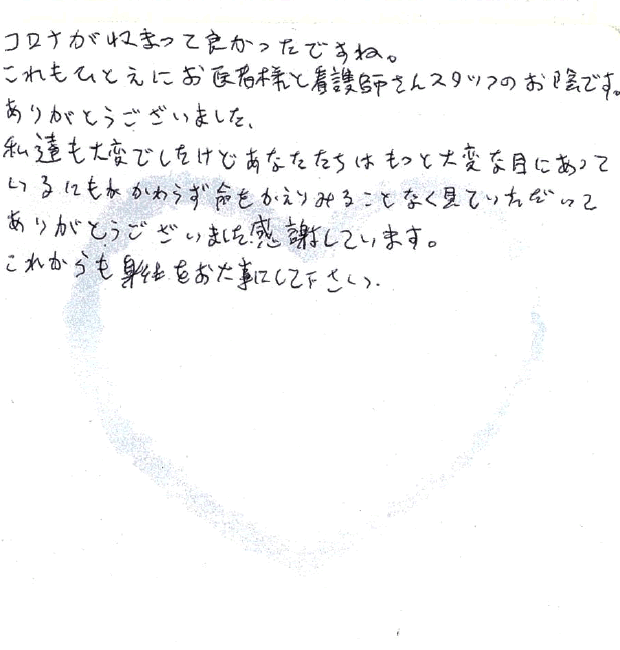 コロナが収まって良かったですね。
これもひとえにお医者様と看護師さんスタッフのお陰です。
ありがとうございました、
私達も大変でしたけどあなたたちはもっと大変な目にあって
いるにもかかわらず命をかえりみることなく見ていただいて
ありがとうございました感謝しています。
これからも身体をお大事にして下さい.